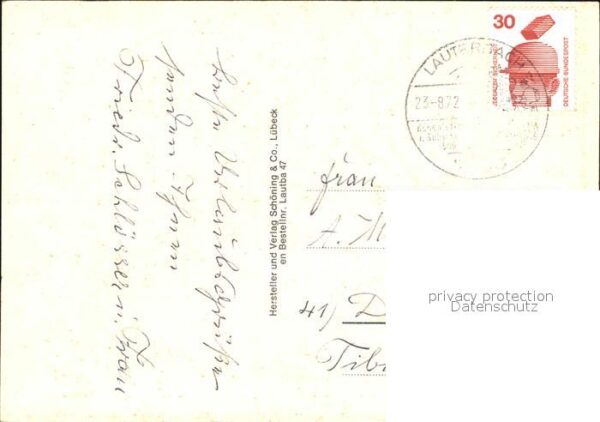 Beste Urlaubsgrüße
senden Ihnen
Friedr. Schlösser u. Frau
Hersteller und Verlag Schöning & Co., Lübeck
en Bestellnr. Lautba 47
30
DEUTSCHE BUNDESPOST
LAUTERBACH
23-8.72
Frau
A. M
41) D
Tib
privacy protection
Datenschutz